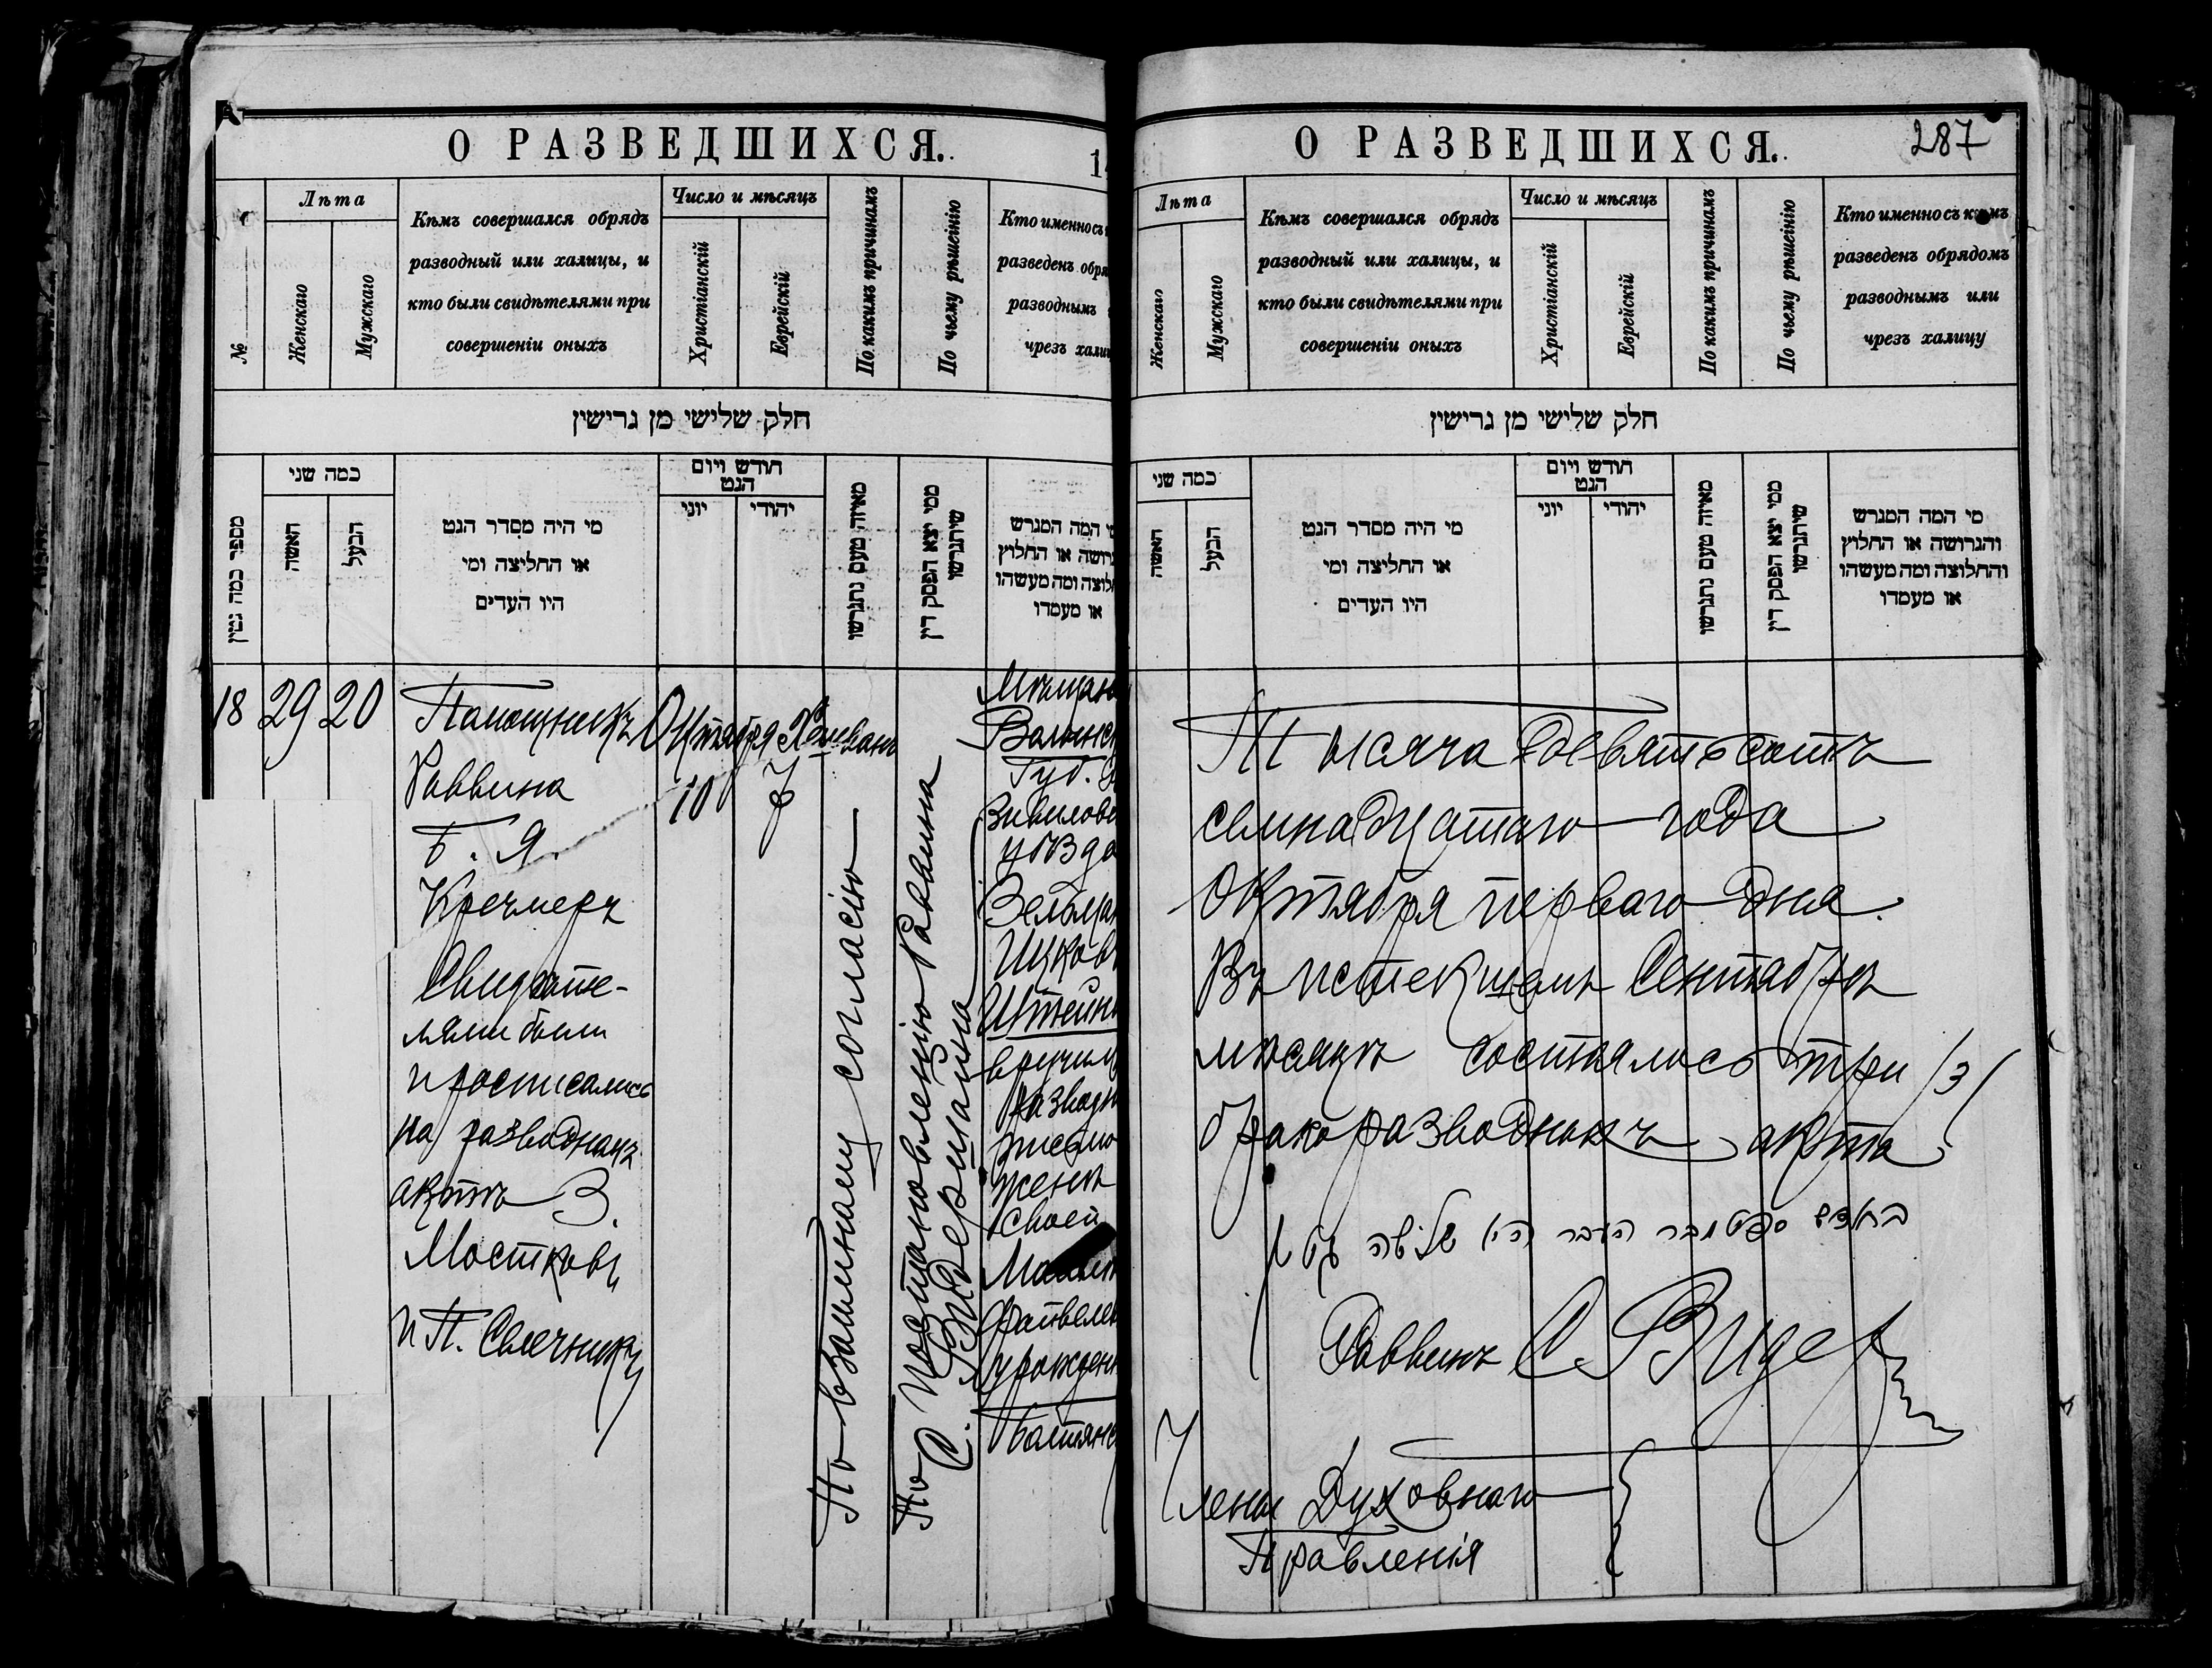 О РАЗВЕДШИХСЯ.
№
Лѣта
Женскаго
Мужскаго
Кѣмъ совершался обрядъ
разводный или халицы, и
кто были свидѣтелями при
совершеніи оныхъ
Число и мѣсяцъ
Христіанскій
Еврейскій
По какимъ причинамъ
По чьему рѣшенію
Кто именно съ
разведенъ обря
разводнымъ
чрезъ халиц
חלק שלישי מן גרישין
מספר כמה גטין
כמה שני
האשה
הבעל
מי היה מסדר הגט
או החליצה ומי
היו העדים
חודש ויום
הגט
יוני
יהודי
מאיזה טעם נתגרשו
ממי יצא הפסק דין
שיתגרשו
מי המה המגרש
גרושה או החלוץ
לוצה ומה מעשהו
או מעמדו
18
29
20
Помощникъ
Раввина
Б. Я.
Кречмеръ
Свидѣте-
лями были
и росписались
на разводномъ
актѣ З.
Мостковъ
и П. Свечникъ
Октября
10
Хешванъ
7
По взаимному согласію
По постановленію Раввина
С. Видермана
Мѣщан
Волынс
Губ.
уѣзда
Ицков
Штейн
вручил
разводн
письмо
женѣ
своей
урожден
О РАЗВЕДШИХСЯ.
287
Лѣта
Женскаго
Мужскаго
Кѣмъ совершался обрядъ
разводный или халицы, и
кто были свидѣтелями при
совершеніи оныхъ
Число и мѣсяцъ
Христіанскій
Еврейскій
По какимъ причинамъ
По чьему рѣшенію
Кто именно съ кѣмъ
разведенъ обрядомъ
разводнымъ или
чрезъ халицу
חלק שלישי מן גרישין
כמה שני
האשה
הבעל
מי היה מסדר הגט
או החליצה ומי
היו העדים
חודש ויום
הגט
יוני
יהודי
מאיזה טעם נתגרשו
ממי יצא הפסק דין
שיתגרשו
מי המה המגרש
והגרושה או החלוץ
והחלוצה ומה מעשהו
או מעמדו
Тысяча девятьсотъ
семнадцатаго года
Октября перваго дня.
Въ истекшемъ Сентябрѣ
мѣсяцѣ состоялось три /3/
бракоразводныхъ акта
בחדש סעפטמבר העבר היו שלשה גטין
Раввинъ С Видер
Члены Духовнаго
Правленія